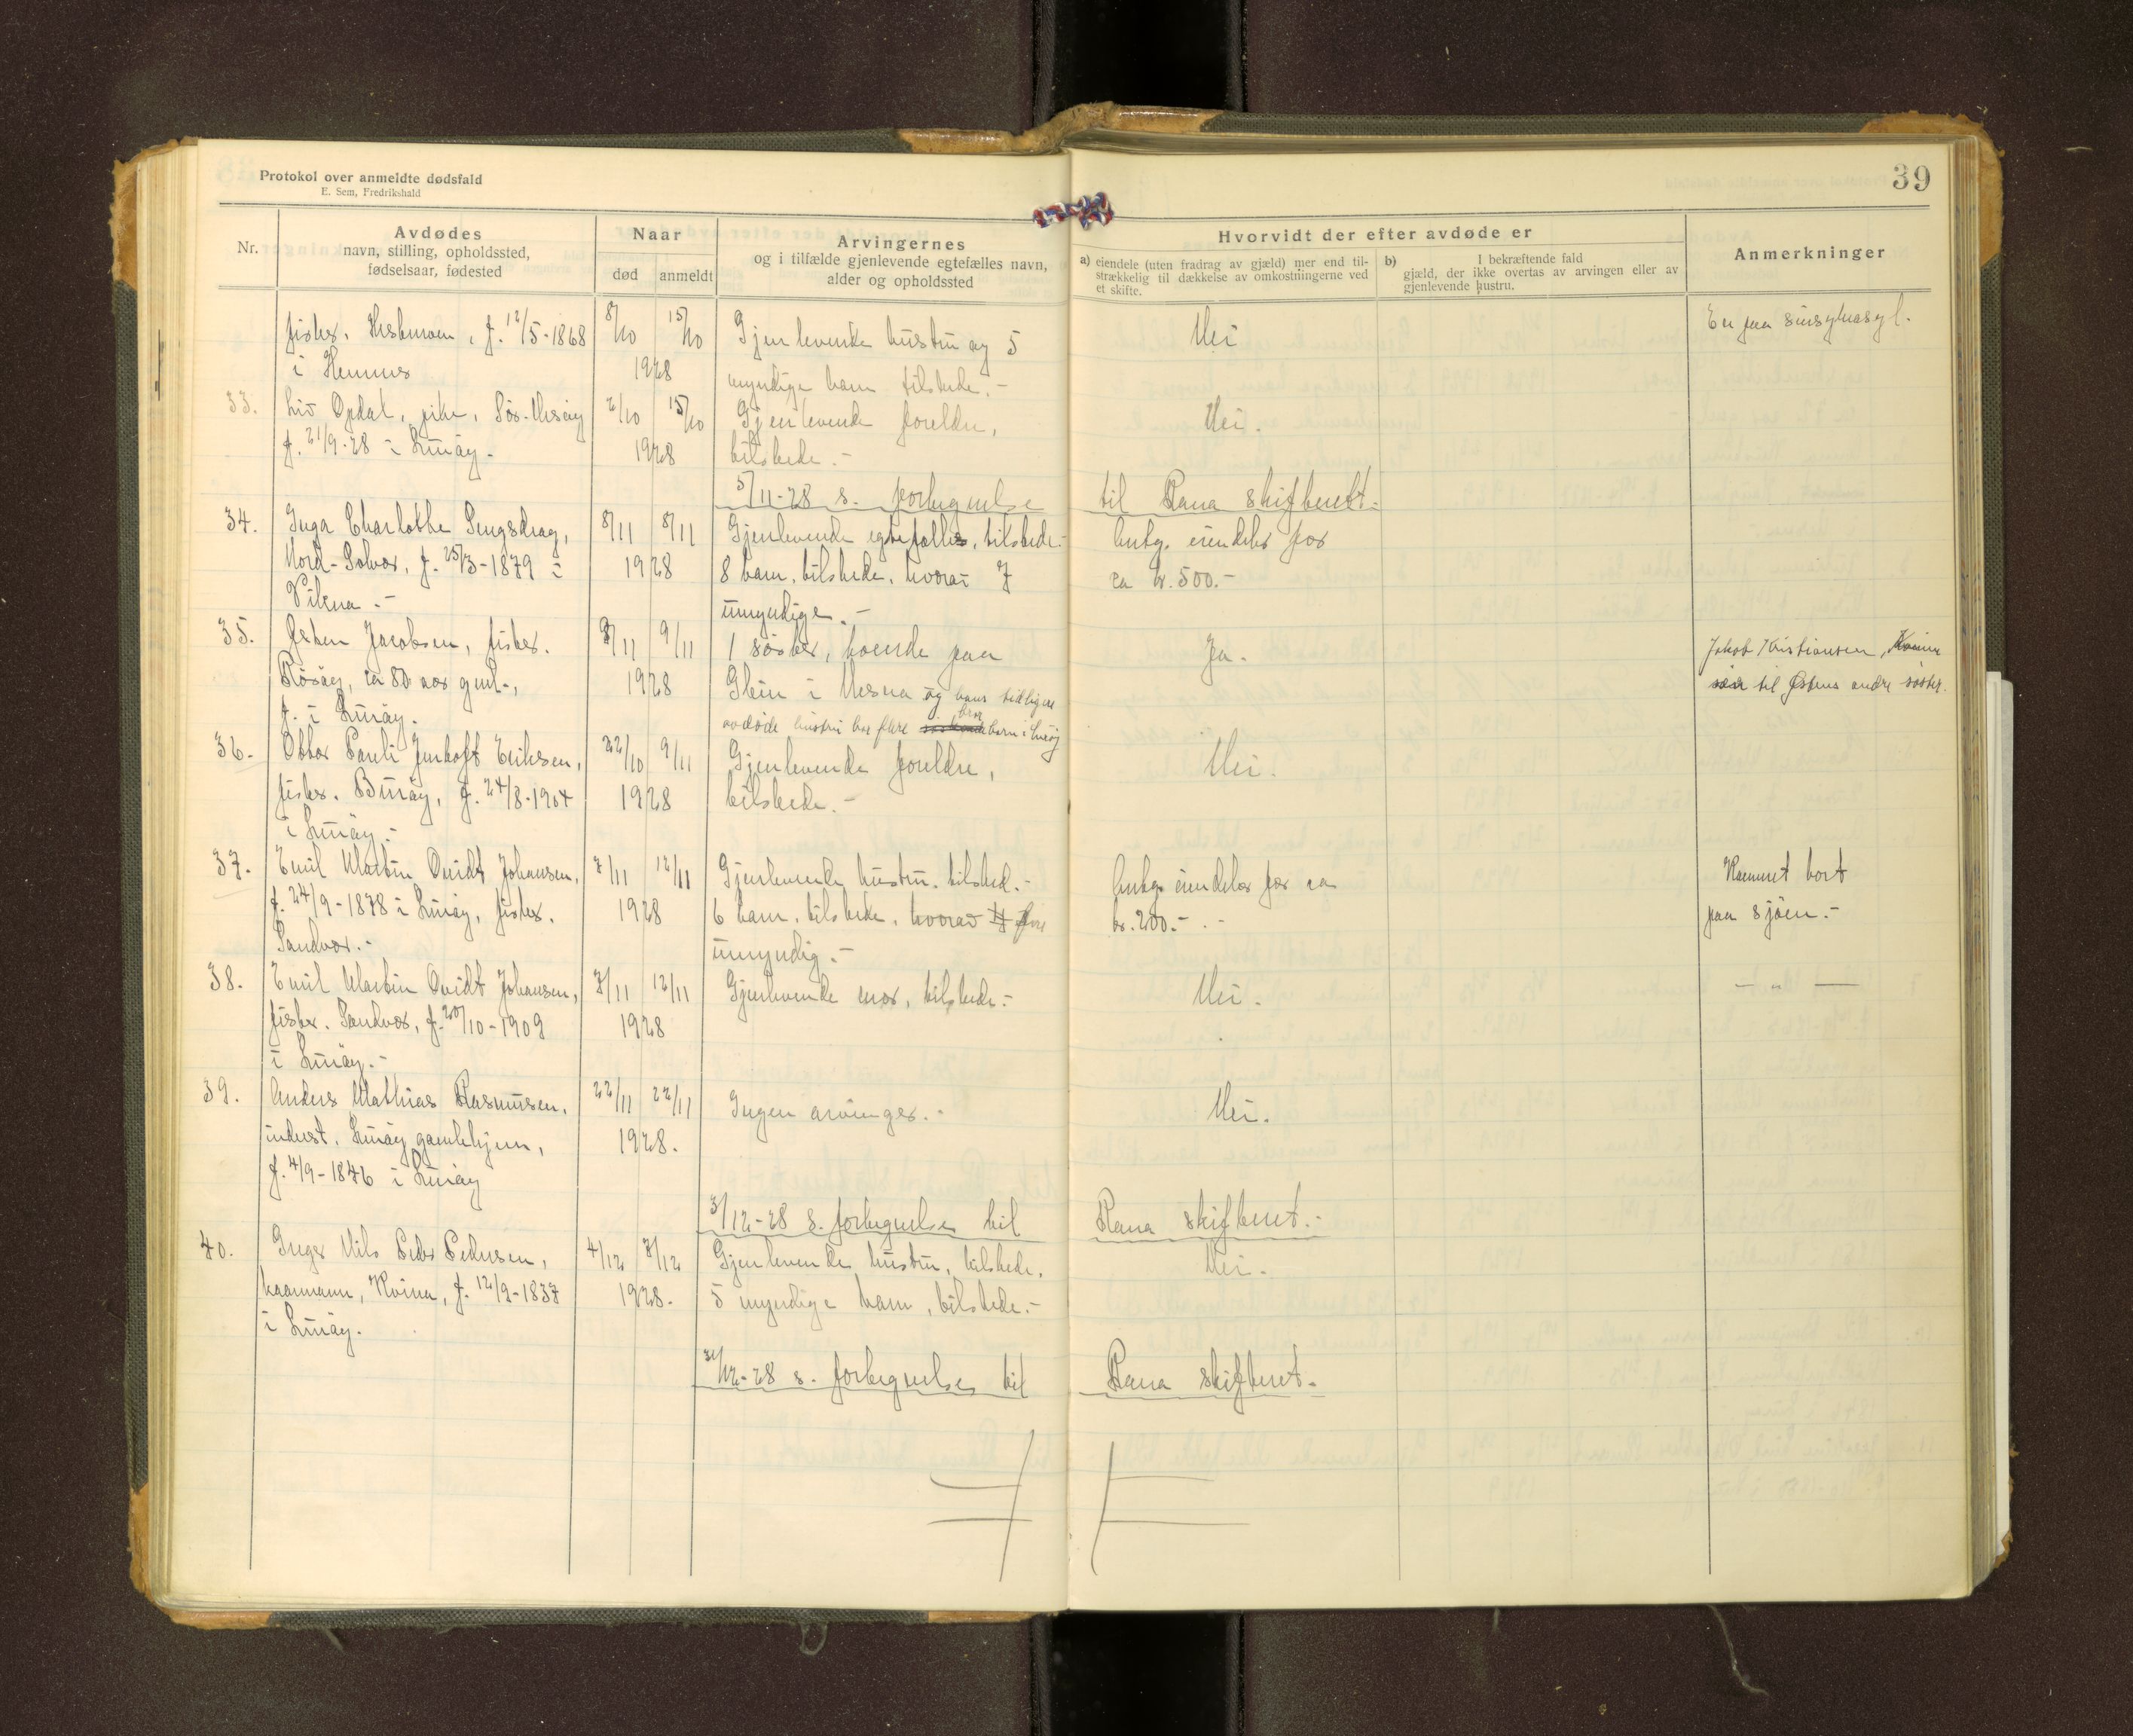 39
Protokol over anmeldte dødsfald
E. Sem, Fredrikshald
Nr.
Avdødes
navn, stilling, opholdssted,
fødselsaar, fødested
Naar
død
anmeldt
Arvingernes
og i tilfælde gjenlevende egtefælles navn,
alder og opholdssted
Hvorvidt der efter avdøde er
a) eiendele (uten fradrag av gjæld) mer end til-
strækkelig til dækkelse av omkostningerne ved
et skifte.
b) I bekræftende fald
gjæld, der ikke overtas av arvingen eller av
gjenlevende hustru.
Anmerkninger
fisker, f. 12/5-1868
i Hemnes
8/10 15/10
1928
Gjenlevende hustru og 5
myndige barn tilstede.-
Nei
En paa sinsykeasyl.
33.
Liv Opdal, pike, Sør-Nesøy
f. 21/9-28 i Lurøy.
2/10 15/10
1928
Gjenlevende foreldre,
tilstede.-
Nei.
5/11-28 s. fortegnelse til Rana skifterett.-
34.
Inga Charlotte Lengsdrag,
Nord-Solvær, f. 25/3-1879 i
Vikna.-
8/11 8/11
1928
Gjenlevende egtefælle, tilstede.-
8 barn, tilstede, hvorav 7
umyndige.-
Antg. eiendeler for
ca kr. 500.-
35.
Østen Jacobsen, fisker.
Rösöy, ca 80 aar gml.,
f. i Lurøy.
8/11 9/11
1928
1 søster, boende paa
Glein i Nesna og hans tidligere
avdøde hustru har flere bror barn i Lurøy
Ja.
Jakob Kristiansen, Kvina
til Østens andre søster.
36.
Ottar Pauli Junhoft Eriksen,
fisker. Buröy, f. 24/8-1904
i Lurøy.-
22/10 9/11
1928
Gjenlevende foreldre,
tilstede.-
Nei.
37.
Emil Martin Qvidt Johansen,
f. 24/9-1878 i Lurøy, fisker.
Sandvær.-
7/11 12/11
1928
Gjenlevende hustru. tilsted.-
6 barn, tilstede, hvorav fire
umyndig.-
Antg. eiendeler for ca
kr. 200.-
Kommet bort
paa sjöen.-
38.
Emil Martin Qvidt Johansen,
fisker. Sandvær, f. 20/10-1909
i Lurøy.-
7/11 12/11
1928
Gjenlevende mor, tilstede.-
Nei.
— " —
39.
Anders Mathias Rasmussen,
inderst. Lurøy gamlehjem,
f. 4/9-1846 i Lurøy
22/11 22/11
1928.
Ingen arvinger.-
Nei.
3/12-28 s. fortegnelse til Rana skifteret.-
40.
Inger Nils Peder Pedersen,
kaarmann, Kvina, f. 12/9-1837
i Lurøy.
4/12 7/12
1928.
Gjenlevende hustru, tilstede.
5 myndige barn, tilstede.-
Nei.
31/12-28 s. fortegnelse til Rana skifteret.-